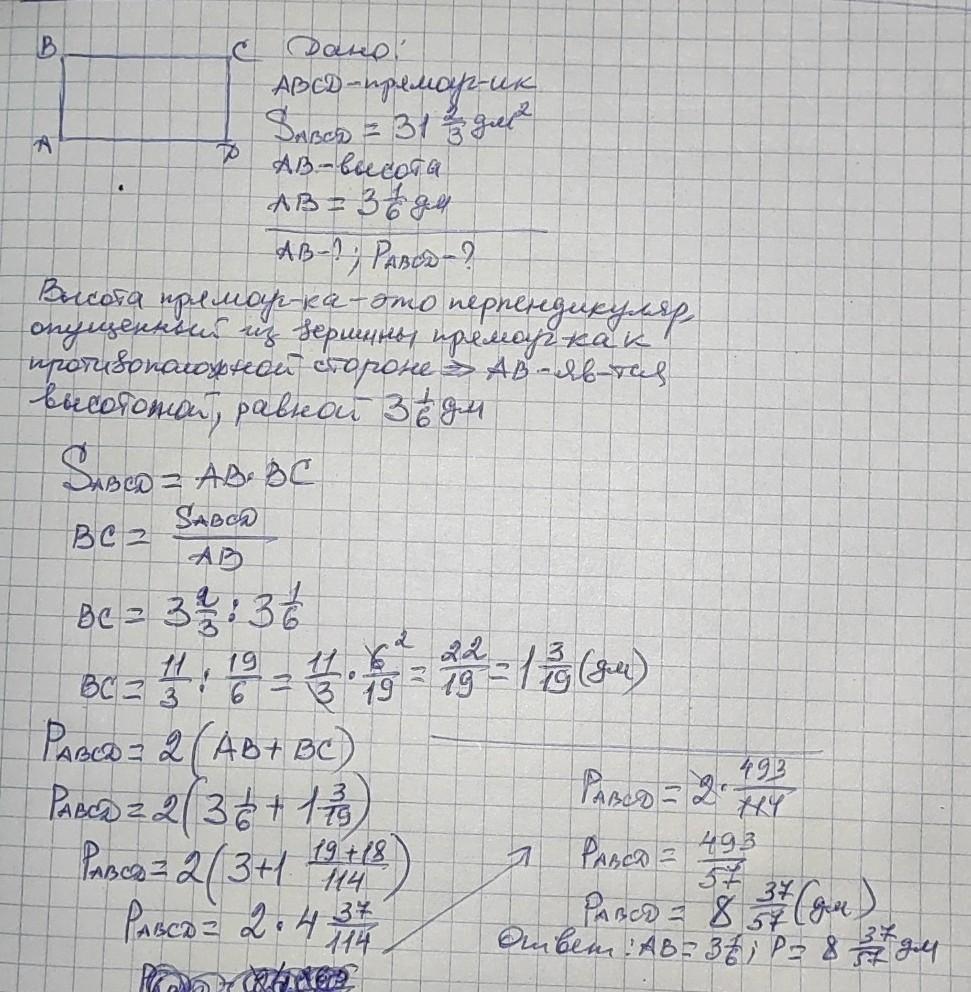 B C Дано:
ABCD-прямоуг-ик
S_ABCD = 31 2/3 дм²
A D
AB-высота
AB = 3 1/6 дм
AB-?; P_ABCD-?
Высота прямоуг-ка-это перпендикуляр,
опущенный из вершины прямоуг-ка к
противоположной стороне ⇒ AB-яв-тся
высототой, равной 3 1/6 дм
S_ABCD = AB · BC
BC = S_ABCD / AB
BC = 3 2/3 : 3 1/6
BC = 11/3 : 19/6 = 11/3 · 6²/19 = 22/19 = 1 3/19 (дм)
P_ABCD = 2(AB + BC)
P_ABCD = 2(3 1/6 + 1 3/19)
P_ABCD = 2(3+1 19+18/114)
P_ABCD = 2 · 4 37/114
P_ABCD = 2 · 493/114
P_ABCD = 493/57
P_ABCD = 8 37/57 (дм)
Ответ: AB = 3 1/6; P = 8 37/57 дм